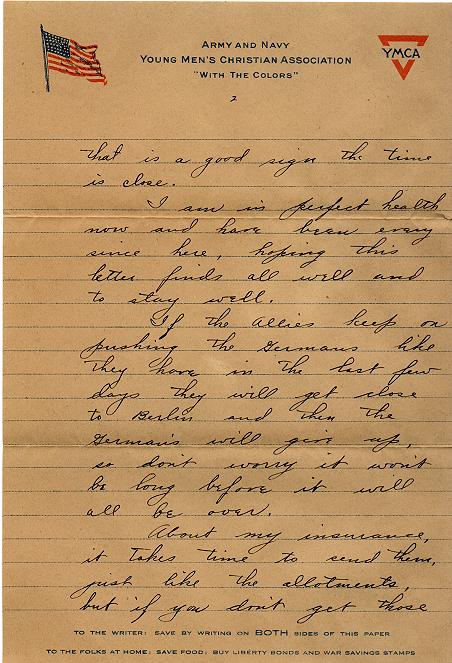 ARMY AND NAVY
YOUNG MEN'S CHRISTIAN ASSOCIATION
"WITH THE COLORS"
YMCA
2
that is a good sign the time
is close.
I am in perfect health
now and have been every
since here, hoping this
letter finds all well and
to stay well.
If the Allies keep on
pushing the Germans like
they have in the last few
days they will get close
to Berlin and then the
German's will give up,
so dont worry it won't
be long before it will
all be over.
About my insurance,
it takes time to send them,
just like the allotments,
but if you don't get those
TO THE WRITER: SAVE BY WRITING ON BOTH SIDES OF THIS PAPER
TO THE FOLKS AT HOME: SAVE FOOD; BUY LIBERTY BONDS AND WAR SAVINGS STAMPS